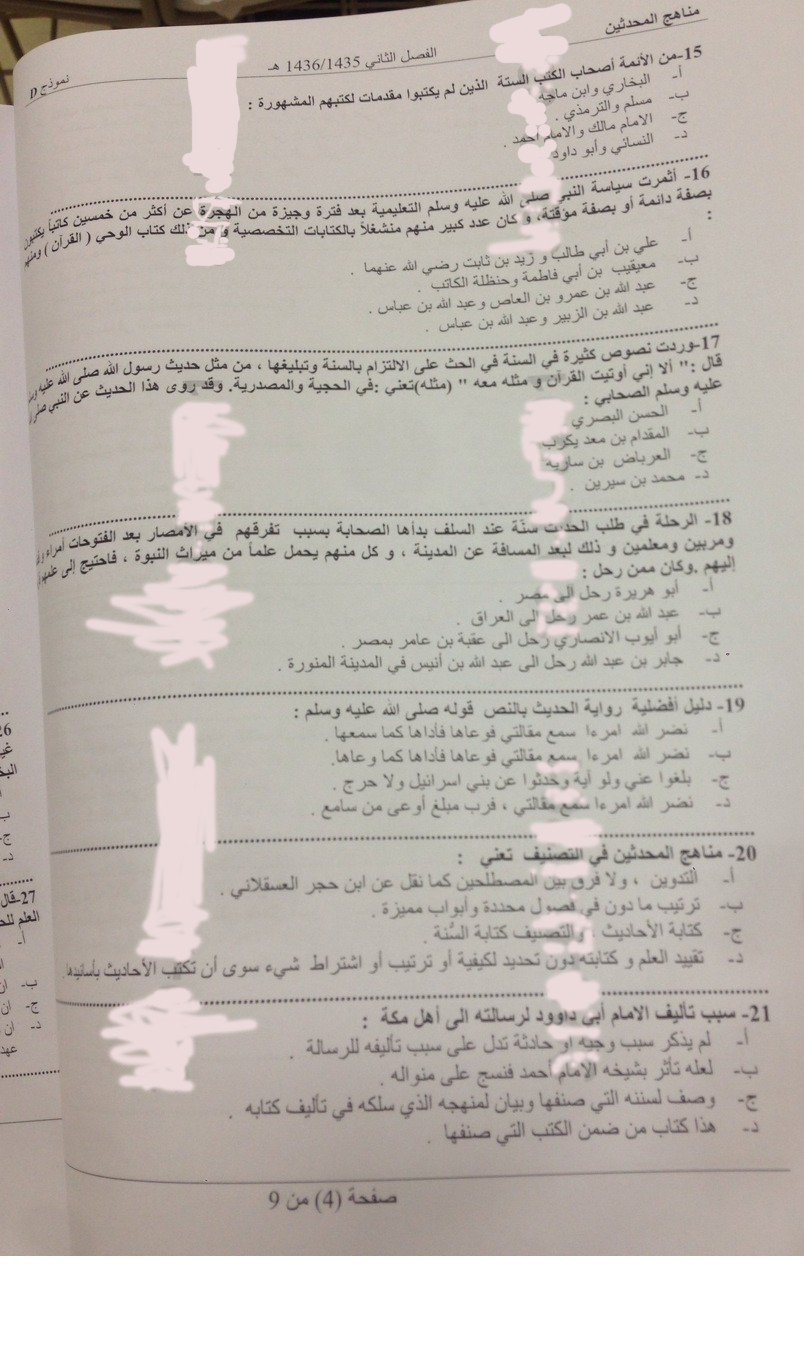 مناهج المحدثين
الفصل الثاني 1436/1435 هـ
نموذج D
15-من الأئمة أصحاب الكتب الستة الذين لم يكتبوا مقدمات لكتبهم المشهورة :
أ- البخاري وابن ماجه
ب- مسلم والترمذي .
ج- الامام مالك والامام أحمد .
د- النسائي وأبو داود
16- أثمرت سياسة النبي صلى الله عليه وسلم التعليمية بعد فترة وجيزة من الهجرة عن أكثر من خمسين كاتباً يكتبون
بصفة دائمة أو بصفة مؤقتة، و كان عدد كبير منهم منشغلاً بالكتابات التخصصية و من ذلك كتاب الوحي ( القرآن ) ومنهم
:
أ- علي بن أبي طالب و زيد بن ثابت رضي الله عنهما .
ب- معيقيب بن أبي فاطمة وحنظلة الكاتب .
ج- عبد الله بن عمرو بن العاص وعبد الله بن عباس .
د- عبد الله بن الزبير وعبد الله بن عباس .
17-وردت نصوص كثيرة في السنة في الحث على الالتزام بالسنة وتبليغها ، من مثل حديث رسول الله صلى الله عليه
قال :" ألا إني أوتيت القرآن و مثله معه " (مثله)تعني :في الحجية والمصدرية. وقد روى هذا الحديث عن النبي صلى
عليه وسلم الصحابي :
أ- الحسن البصري
ب- المقدام بن معد يكرب
ج- العرباض بن سارية
د- محمد بن سيرين .
18- الرحلة في طلب الحديث سنّة عند السلف بدأها الصحابة بسبب تفرقهم في الأمصار بعد الفتوحات أمراء
ومربين ومعلمين و ذلك لبعد المسافة عن المدينة ، و كل منهم يحمل علماً من ميراث النبوة ، فاحتيج إلى علمهم
إليهم .وكان ممن رحل :
أ- أبو هريرة رحل الى مصر .
ب- عبد الله بن عمر رحل الى العراق .
ج- أبو أيوب الانصاري رحل الى عقبة بن عامر بمصر .
د- جابر بن عبد الله رحل الى عبد الله بن أنيس في المدينة المنورة .
19- دليل أفضلية رواية الحديث بالنص قوله صلى الله عليه وسلم :
أ- نضر الله امرءا سمع مقالتي فوعاها فأداها كما سمعها .
ب- نضر الله امرءا سمع مقالتي فوعاها فأداها كما وعاها.
ج- بلغوا عني ولو آية وحدثوا عن بني اسرائيل ولا حرج .
د- نضر الله امرءا سمع مقالتي ، فرب مبلغ أوعى من سامع .
20- مناهج المحدثين في التصنيف تعني :
أ- التدوين ، ولا فرق بين المصطلحين كما نقل عن ابن حجر العسقلاني .
ب- ترتيب ما دون في فصول محددة وأبواب مميزة .
ج- كتابة الأحاديث والتصنيف كتابة السُّنة .
د- تقييد العلم و كتابته دون تحديد لكيفية أو ترتيب أو اشتراط شيء سوى أن تكتب الأحاديث بأسانيدها
21- سبب تأليف الامام أبي داوود لرسالته الى أهل مكة :
أ- لم يذكر سبب وجيه او حادثة تدل على سبب تأليفه للرسالة .
ب- لعله تأثر بشيخه الامام أحمد فنسج على منواله .
ج- وصف لسننه التي صنفها وبيان لمنهجه الذي سلكه في تأليف كتابه .
د- هذا كتاب من ضمن الكتب التي صنفها .
صفحة (4) من 9
27-قال